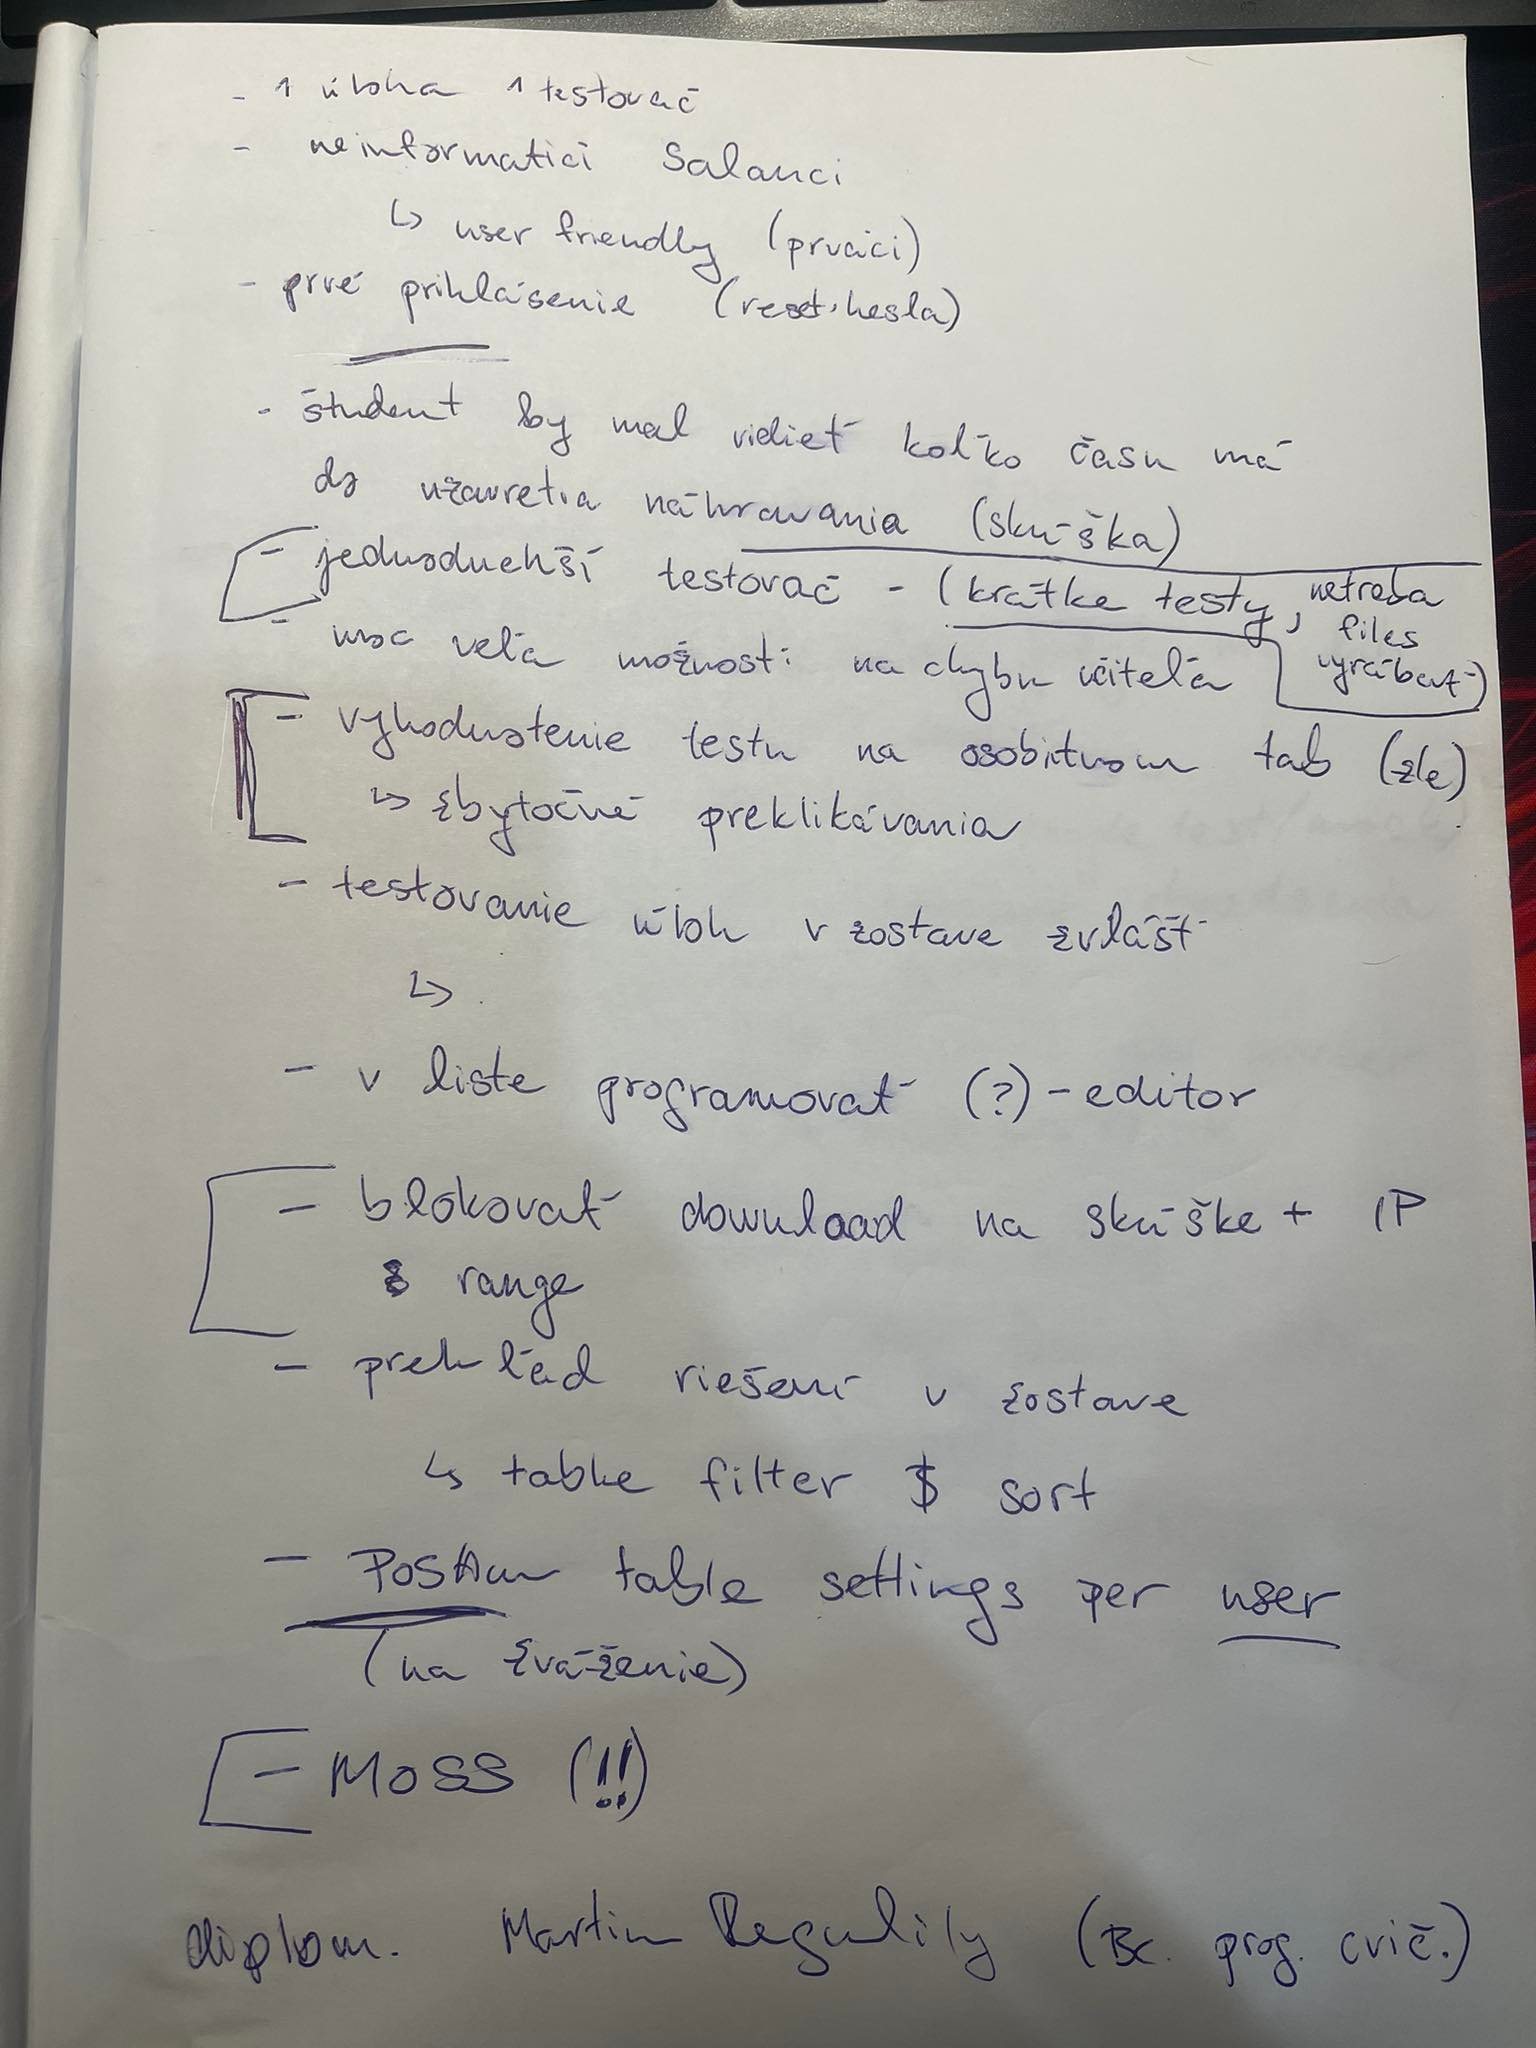 - 1 úloha 1 testovač
- neinformatici Salanci
↳ user friendly (prváci)
- prvé prihlásenie (reset hesla)
- študent by mal vidieť koľko času má
do uzavretia nahrávania (skúška)
- jednoduchší testovač - (krátke testy, netreba
files
vyrábať)
- moc veľa možností na chybu učiteľa
- vyhodnotenie testu na osobitnom tab (zle)
↳ zbytočné preklikávania
- testovanie úloh v zostave zvlášť
↳ .
- v liste programovať (?) - editor
- blokovať download na skúške + IP
range
- prehľad riešení v zostave
↳ table filter $ sort
- table settings per user
(na zváženie)
- MOSS (!!)
diplom. Martin (Bc. prog. cvič.)